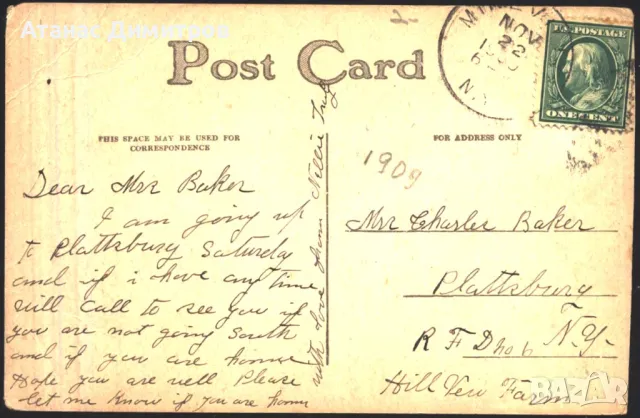 Атанас Димитров
Post Card
NOV
22
1909
N.Y.
U.S. POSTAGE
ONE CENT
THIS SPACE MAY BE USED FOR
CORRESPONDENCE
FOR ADDRESS ONLY
1909
Dear Mrs Baker
I am going up
to Plattsburg Saturday
and if i have any time
will call to see you if
you are not going South
and if you are home
Hope you are well Please
let me know if you are home
with love from Nellie
Mrs Charles Baker
Plattsburg
N.Y.
R F D no 6
Hill View Farm
BAZAR